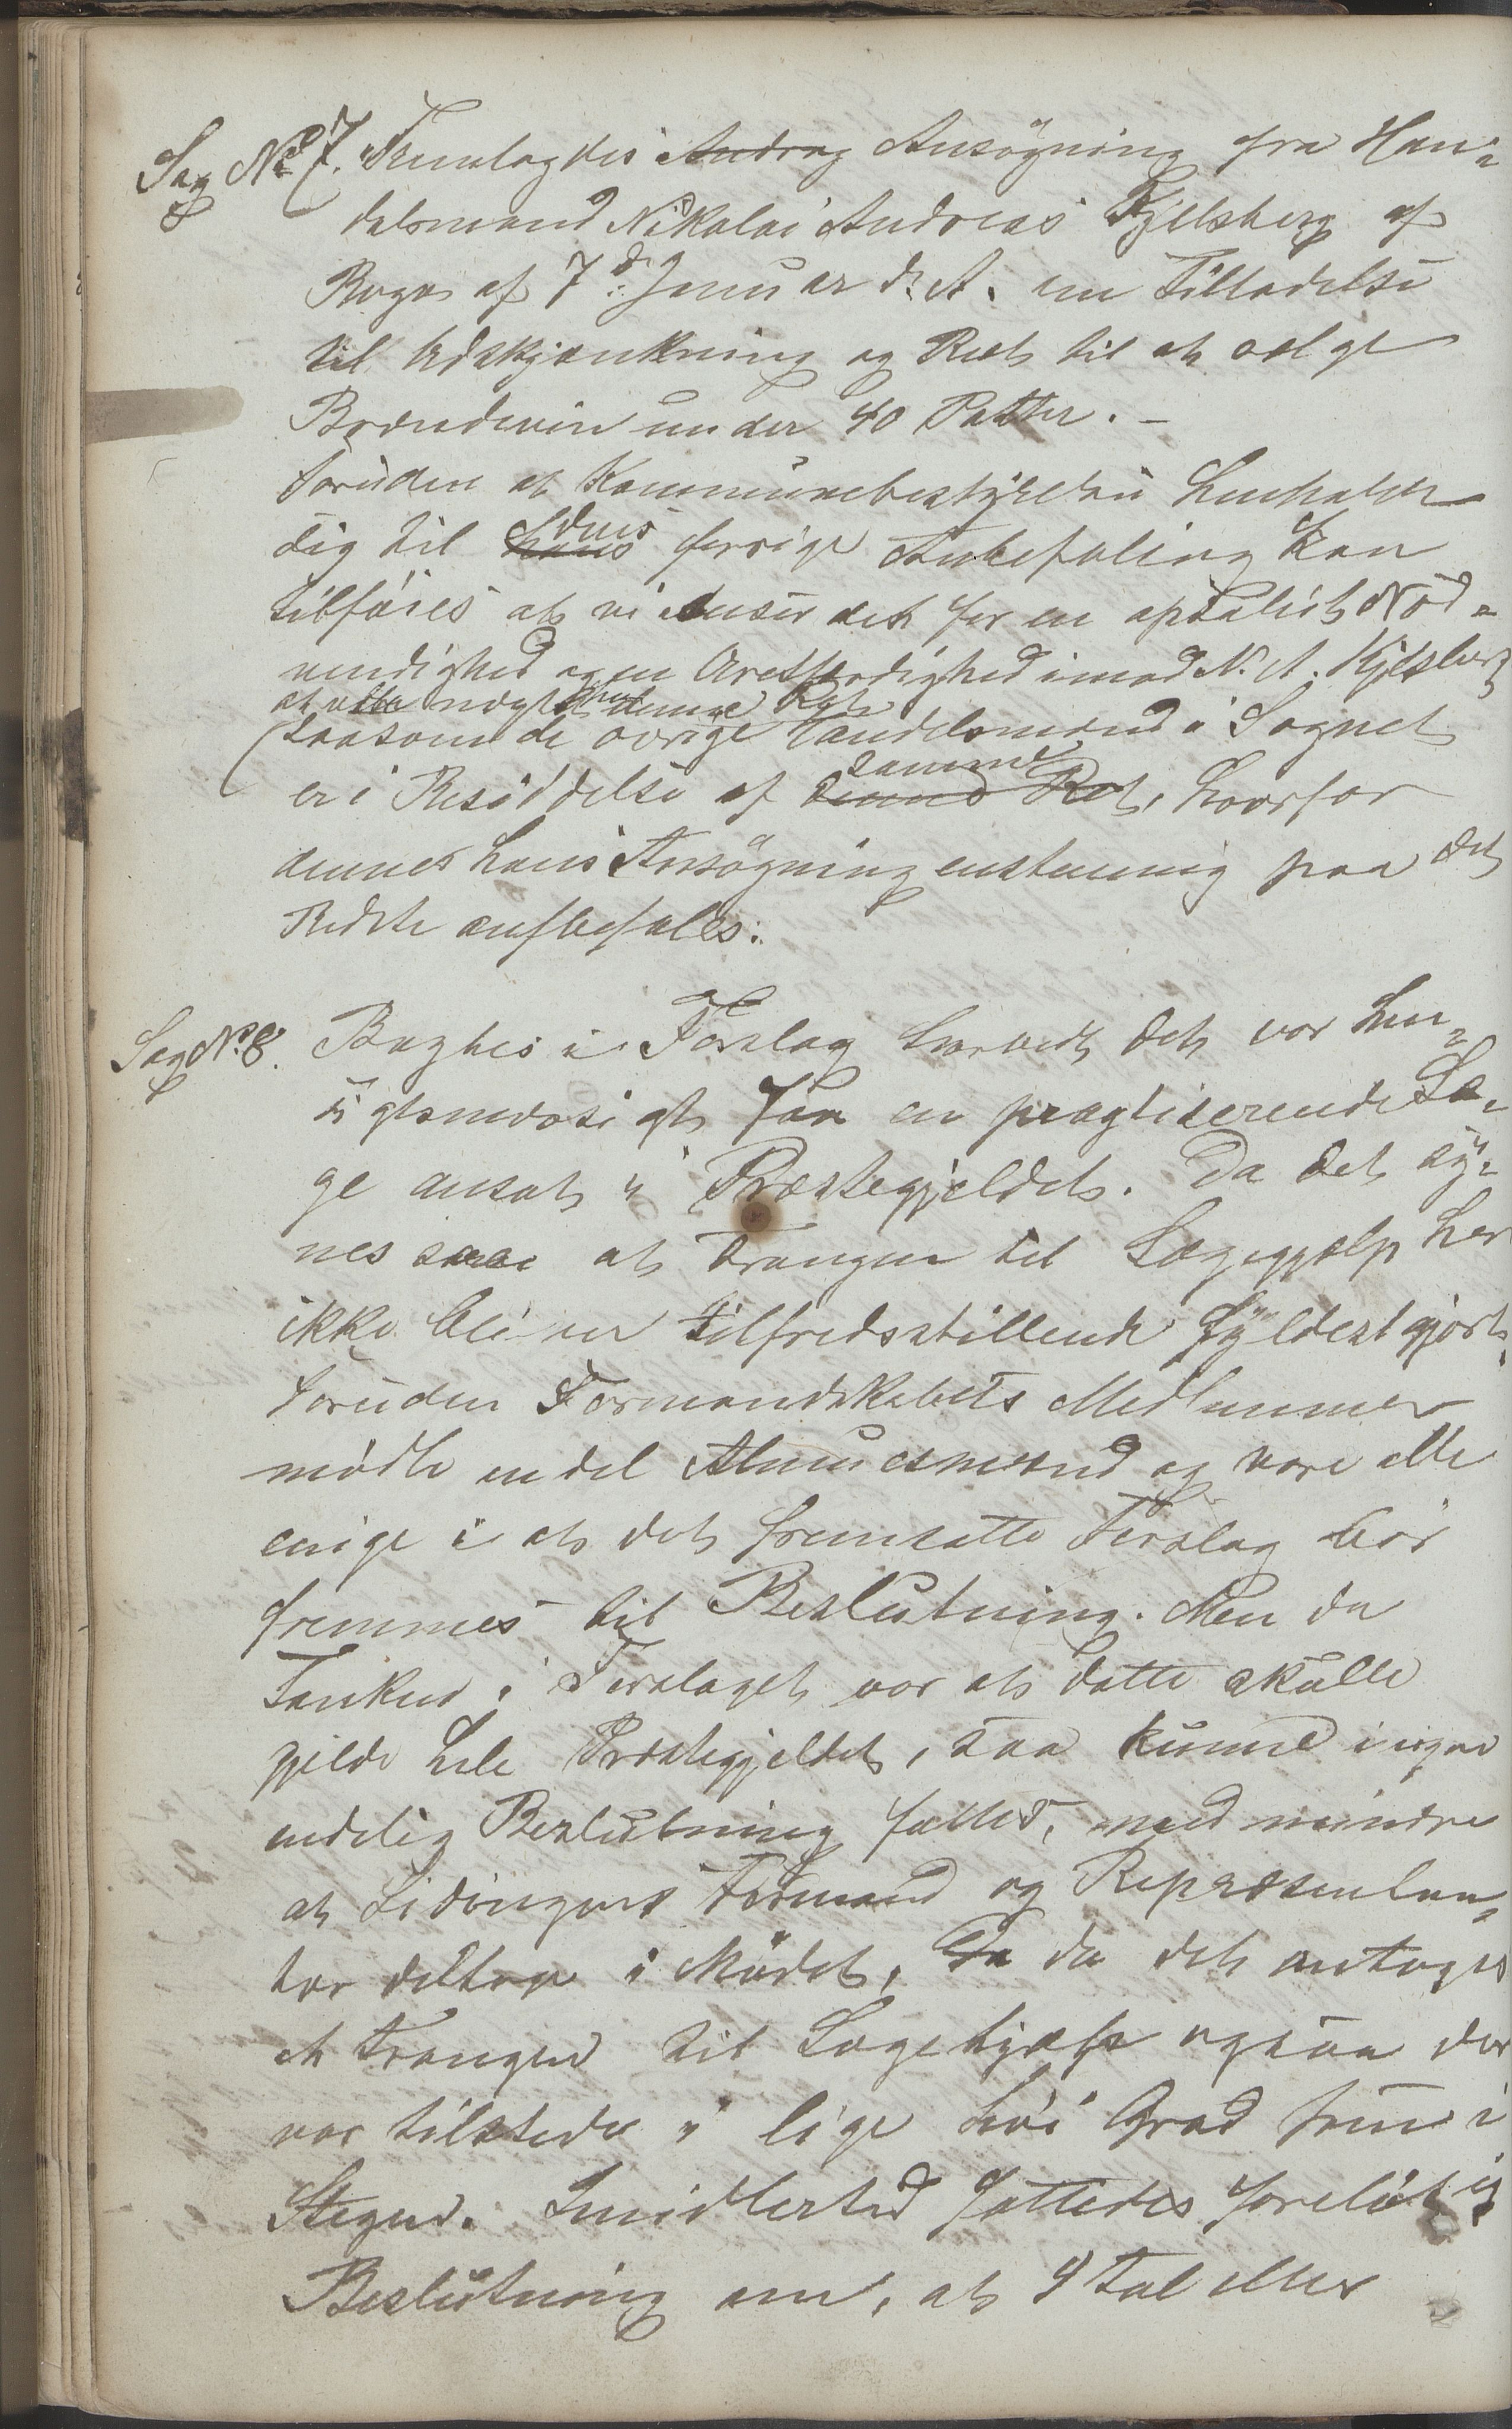 Sag No 7. Fremlagdes Andrag Ansögning fra Han-
delsmand Nikolai Andreas Kjelsberg af
Bogø af 7de Januar d. A. om Tilladelse
til Udskjænkning og Ret til at sælge
Brændevin under 40 Potter. –
Foruden at Kommunebestyrelsen henholder
sig til hans dens forrige Anbefaling kan
tilföies at vi anser det for en absolut Nöd-
vendighed og en Uretfærdighed imod N. A. Kjelsberg
at nægte ham denne Ret
saasom de øvrige Handelsmænd i Sognet
er i Besiddelse af denne Ret, samme hvorfor
denne hans Ansögning enstemmig paa det
Bedste anbefales.
Sag No 8. Bragtes i Forslag hvorvidt det var hen-
sigtsmæssigt faa en pragtiserende Læ-
ge ansat i Præstegjeldet. Da det sy-
nes at Trangen til Lægehjælp her
ikke bliver tilfredsstillende fyldestgjort.
Foruden Formandskabets Medlemmer
mødte endel Almuesmænd og vare alle
enige i at det fremsatte Forslag bör
fremmes til Beslutning. Men da
Tanken i Forslaget var at dette skulle
gjelde hele Præstegjeldet, saa kunne ingen
endelig Beslutning fattes, med mindre
at Lødingens Formænd og Repræsentan-
ter deltage i Mødet, Da da det antages
at Trangen til Lægehjælp ogsaa der
var tilstede i lige høi Grad som i
Stegen. Imidlertid fattedes foreløbig
Beslutning om, at 4 Tal eller